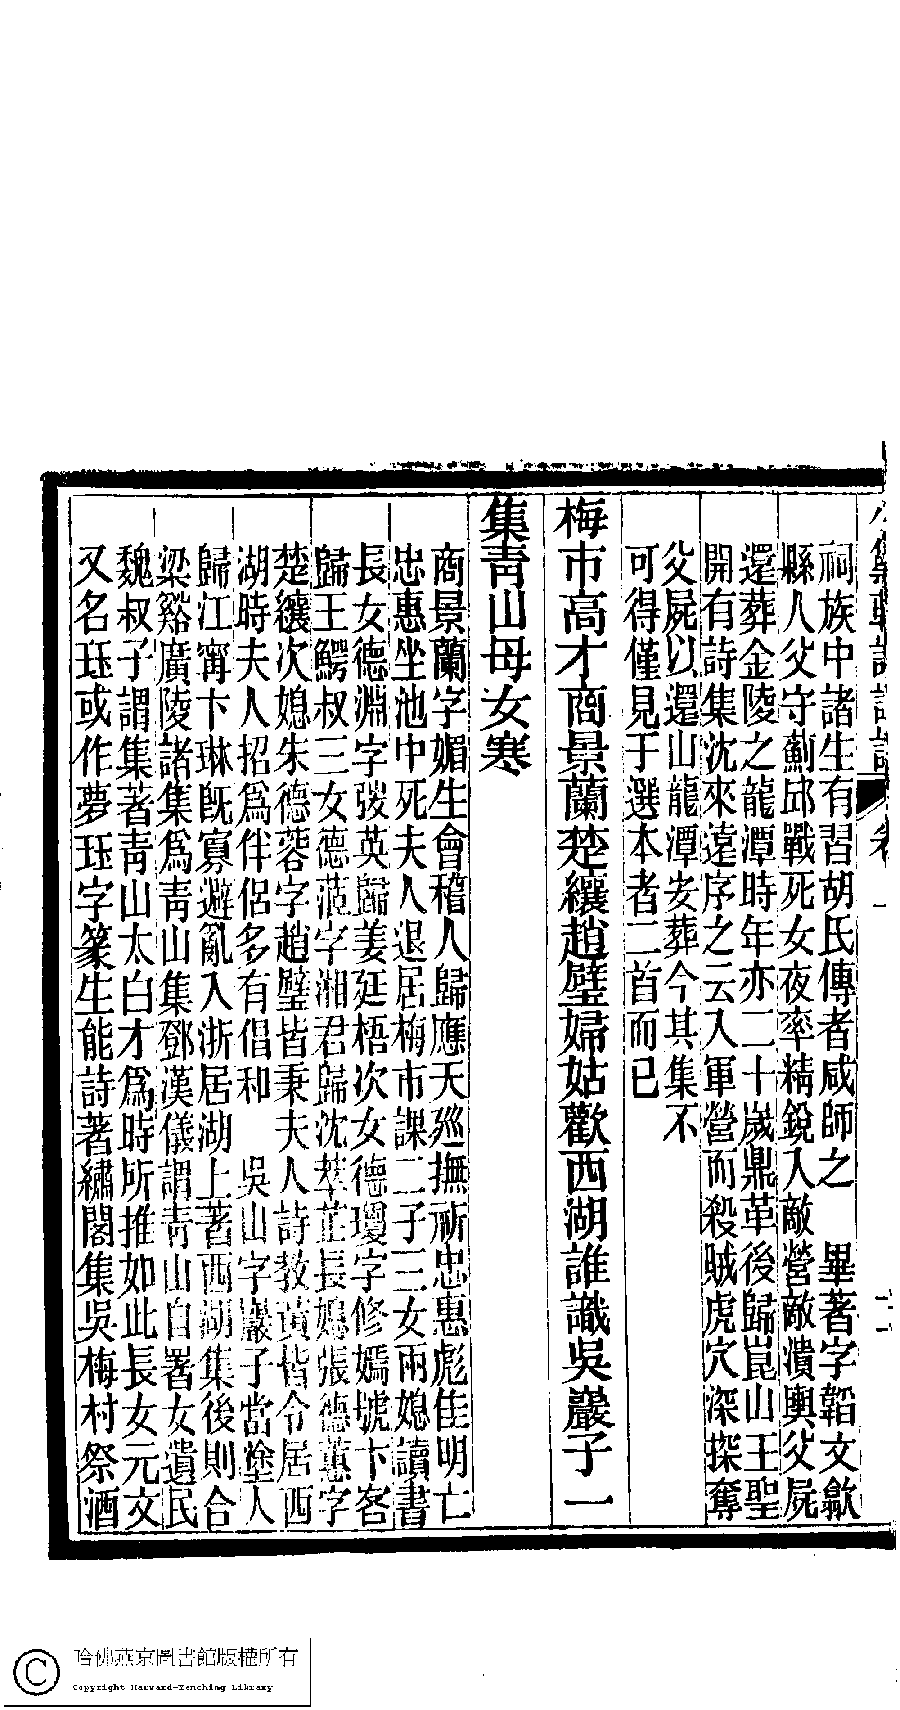 祠族中諸生有習胡氏傳者咸師之　畢著字韜文歙
縣人父守薊邱戰死女夜率精銳入敵營敵潰輿父屍
還葬金陵之龍潭時年亦二十歲鼎革後歸崑山王聖
開有詩集沈來遠序之云入軍營而殺賊虎穴深探奪
父屍以還山龍潭安葬今其集不
可得僅見于選本者二首而已
梅市高才商景蘭楚纕趙璧婦姑歡西湖誰識吳巖子一
集青山母女寒
商景蘭字媚生會稽人歸應天巡撫祁忠惠彪佳明亡
忠惠坐池中死夫人退居梅市課二子三女兩媳讀書
長女德淵字弢英歸姜廷梧次女德瓊字修嫣號卞客
歸王鰐叔三女德茞字湘君歸沈萃芷長媳張德蕙字
楚纕次媳朱德蓉字趙璧皆秉夫人詩教黃皆令居西
湖時夫人招為伴侶多有倡和　吳山字巖子當塗人
歸江甯卞琳旣寡避亂入浙居湖上著西湖集後則合
梁谿廣陵諸集為青山集鄧漢儀謂青山自署女遺民
魏叔子謂集著青山太白才為時所推如此長女元文
又名珏或作夢珏字篆生能詩著繡閣集吳梅村祭酒
哈佛燕京圖書館版權所有
Copyright Harvard-Yenching Library